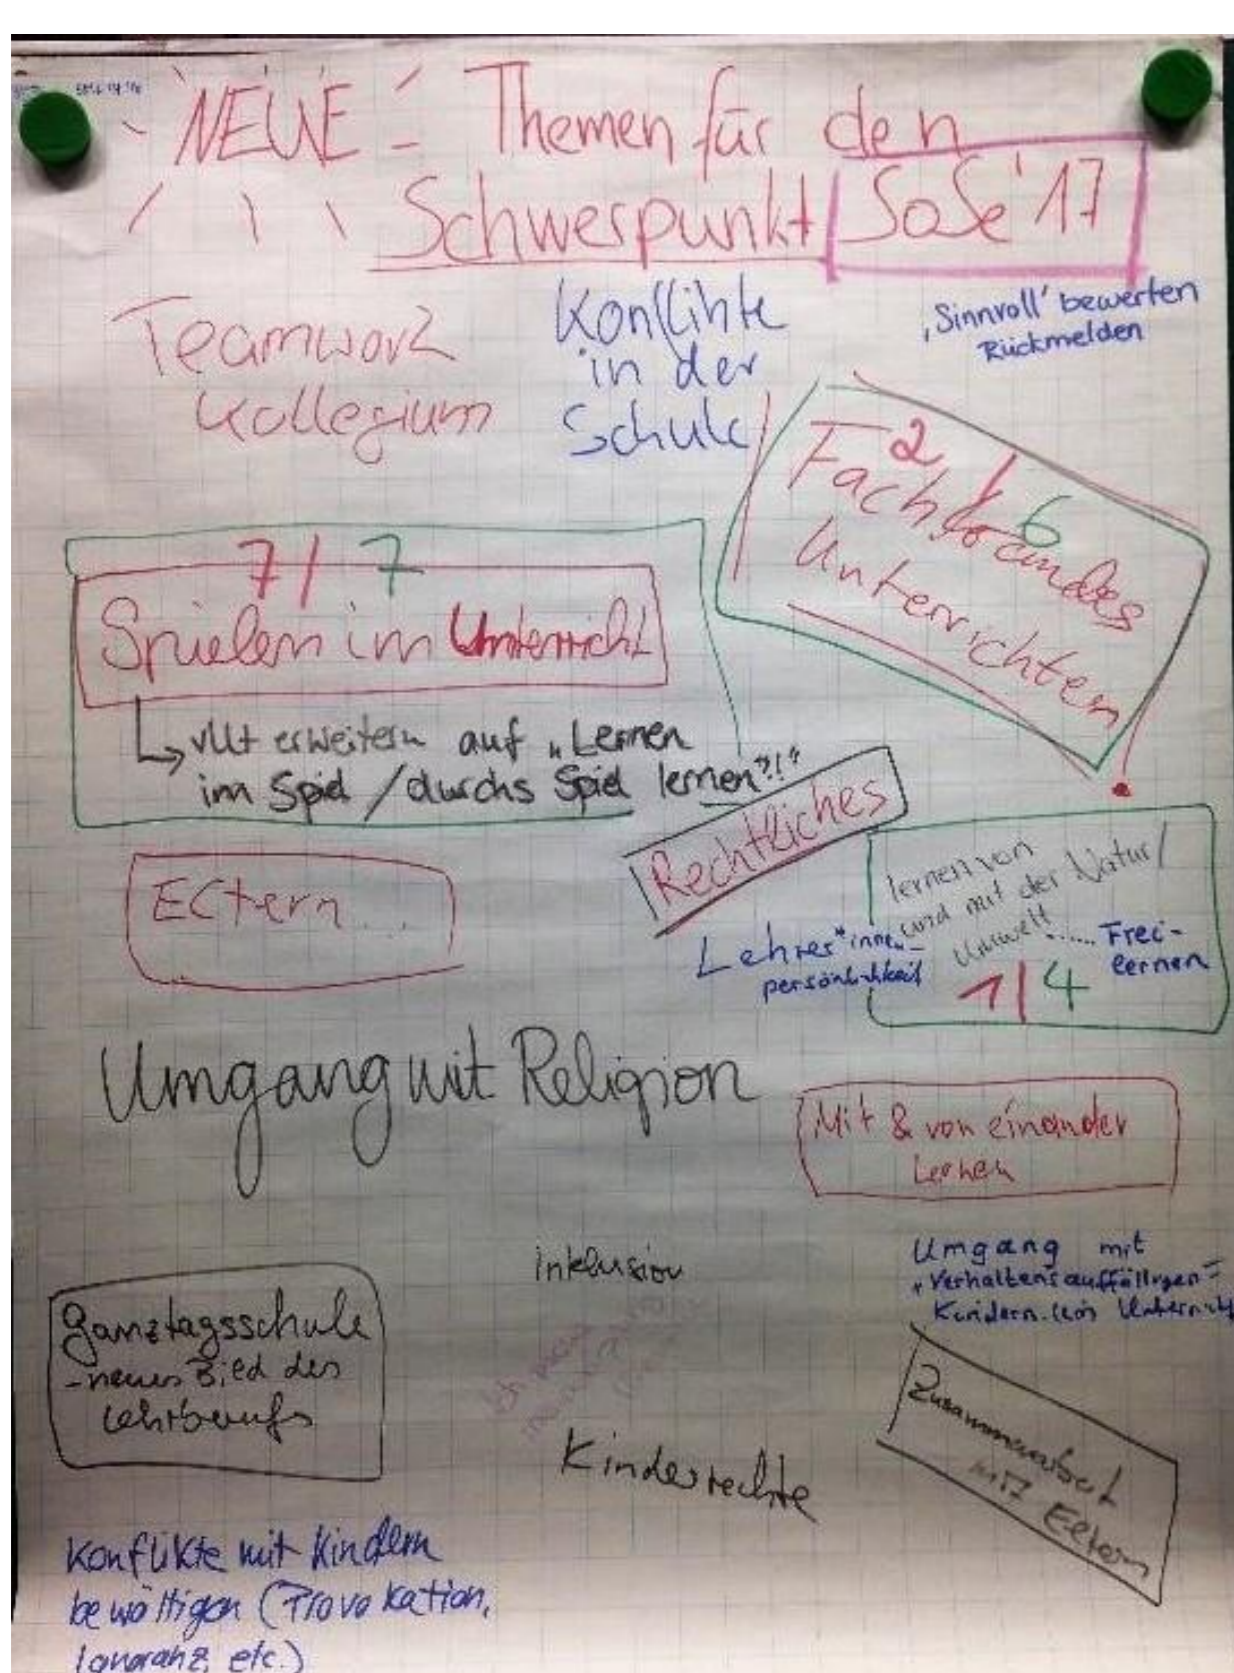 NEUE Themen für den
Schwerpunkt SoSe '17
Teamwork
Kollegium
Konflikte
in der
Schule
‚Sinnvoll' bewerten
Rückmelden
2 / 6
Fachfremdes
Unterrichten
7 / 7
Spielen im Unterricht
vllt erweitern auf „Lernen
im Spiel / durchs Spiel lernen?!"
Rechtliches
Eltern...
lernen von
und mit der Natur/
Umwelt ...... Frei-
lernen
1 | 4
Lehrer*innen-
persönlichkeit
Umgang mit Religion
Mit & von einander
Lernen
Inklusion
Umgang mit
„Verhaltensauffälligen"
Kindern im Unterricht
Ganztagsschule
- neues Bild des
Lehrberufs
Kinderrechte
Zusammenarbeit
mit Eltern
Konflikte mit Kindern
bewältigen (Provokation,
Ignoranz, etc.)